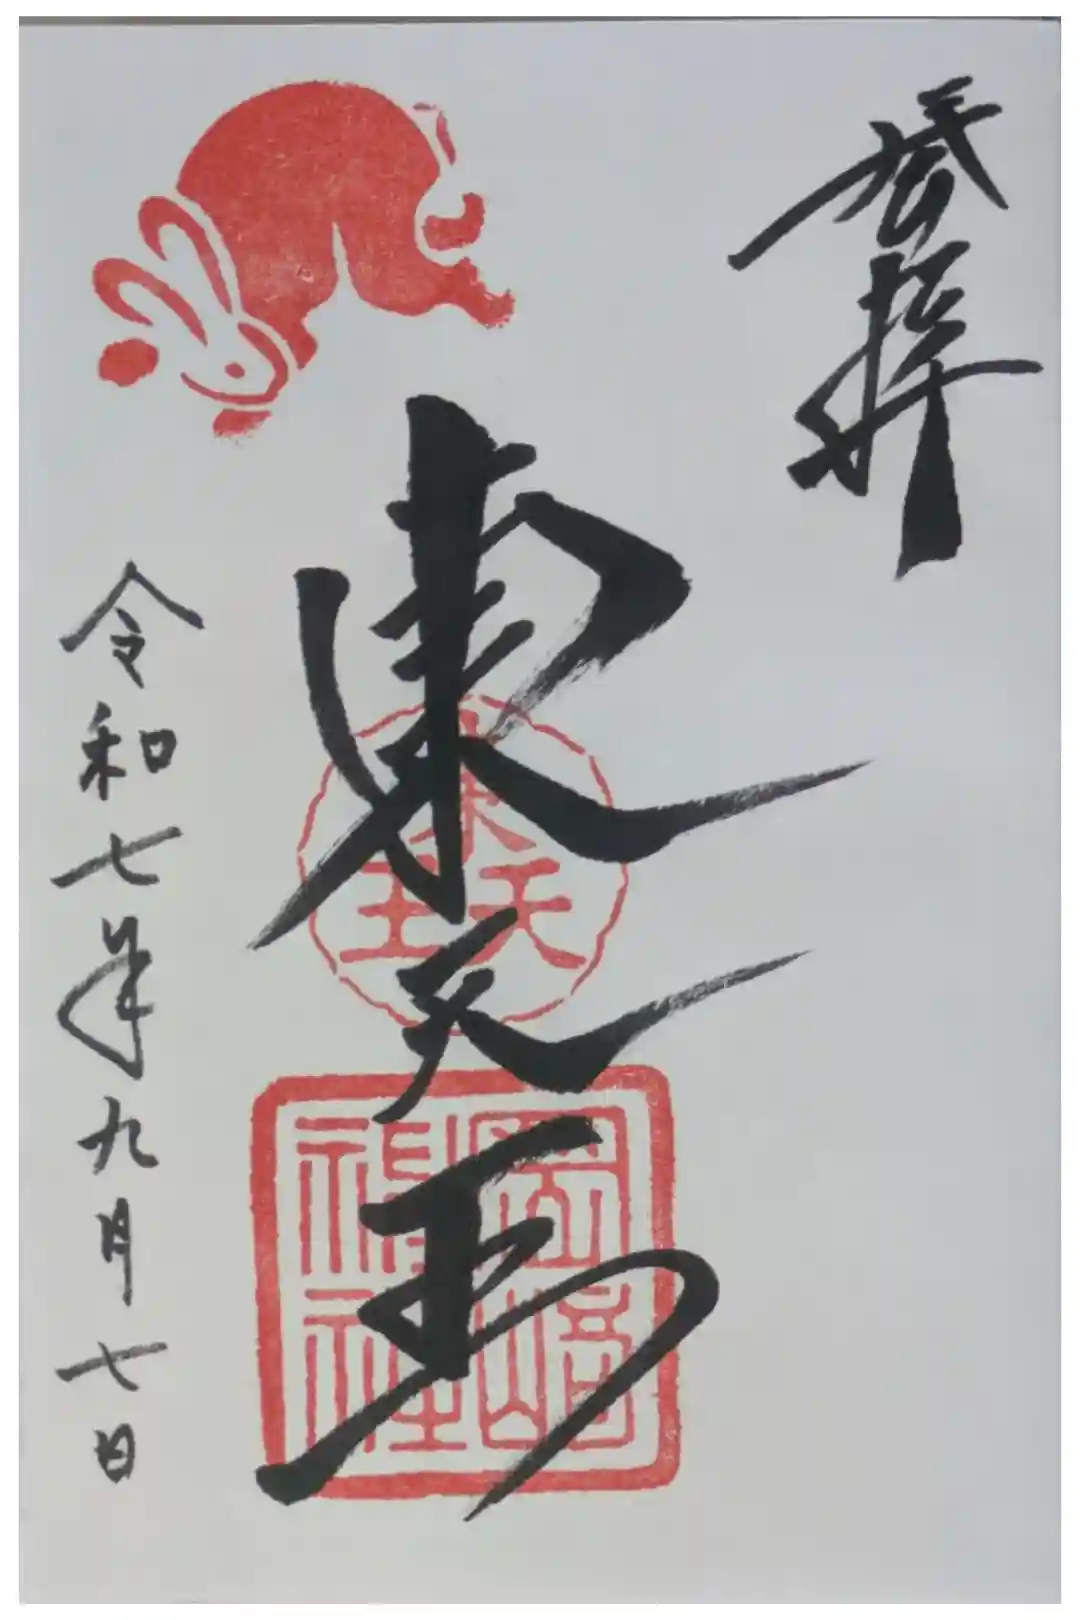 奉拝
東天王
東天王
岡﨑神社
令和七年九月七日